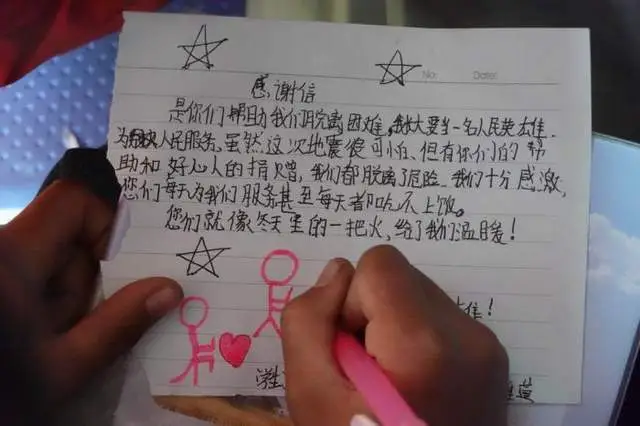 No: Date:
感谢信
是你们帮助我们脱离困难,我长大要当一名人民英雄.
为人民服务,虽然这次地震很可怕,但有你们的帮
助和好心人的捐赠,我们都脱离了危险,我们十分感激,
您们每天为我们服务甚至每天都吃不上饭。
您们就像冬天里的一把火,给了我们温暖!
雄!